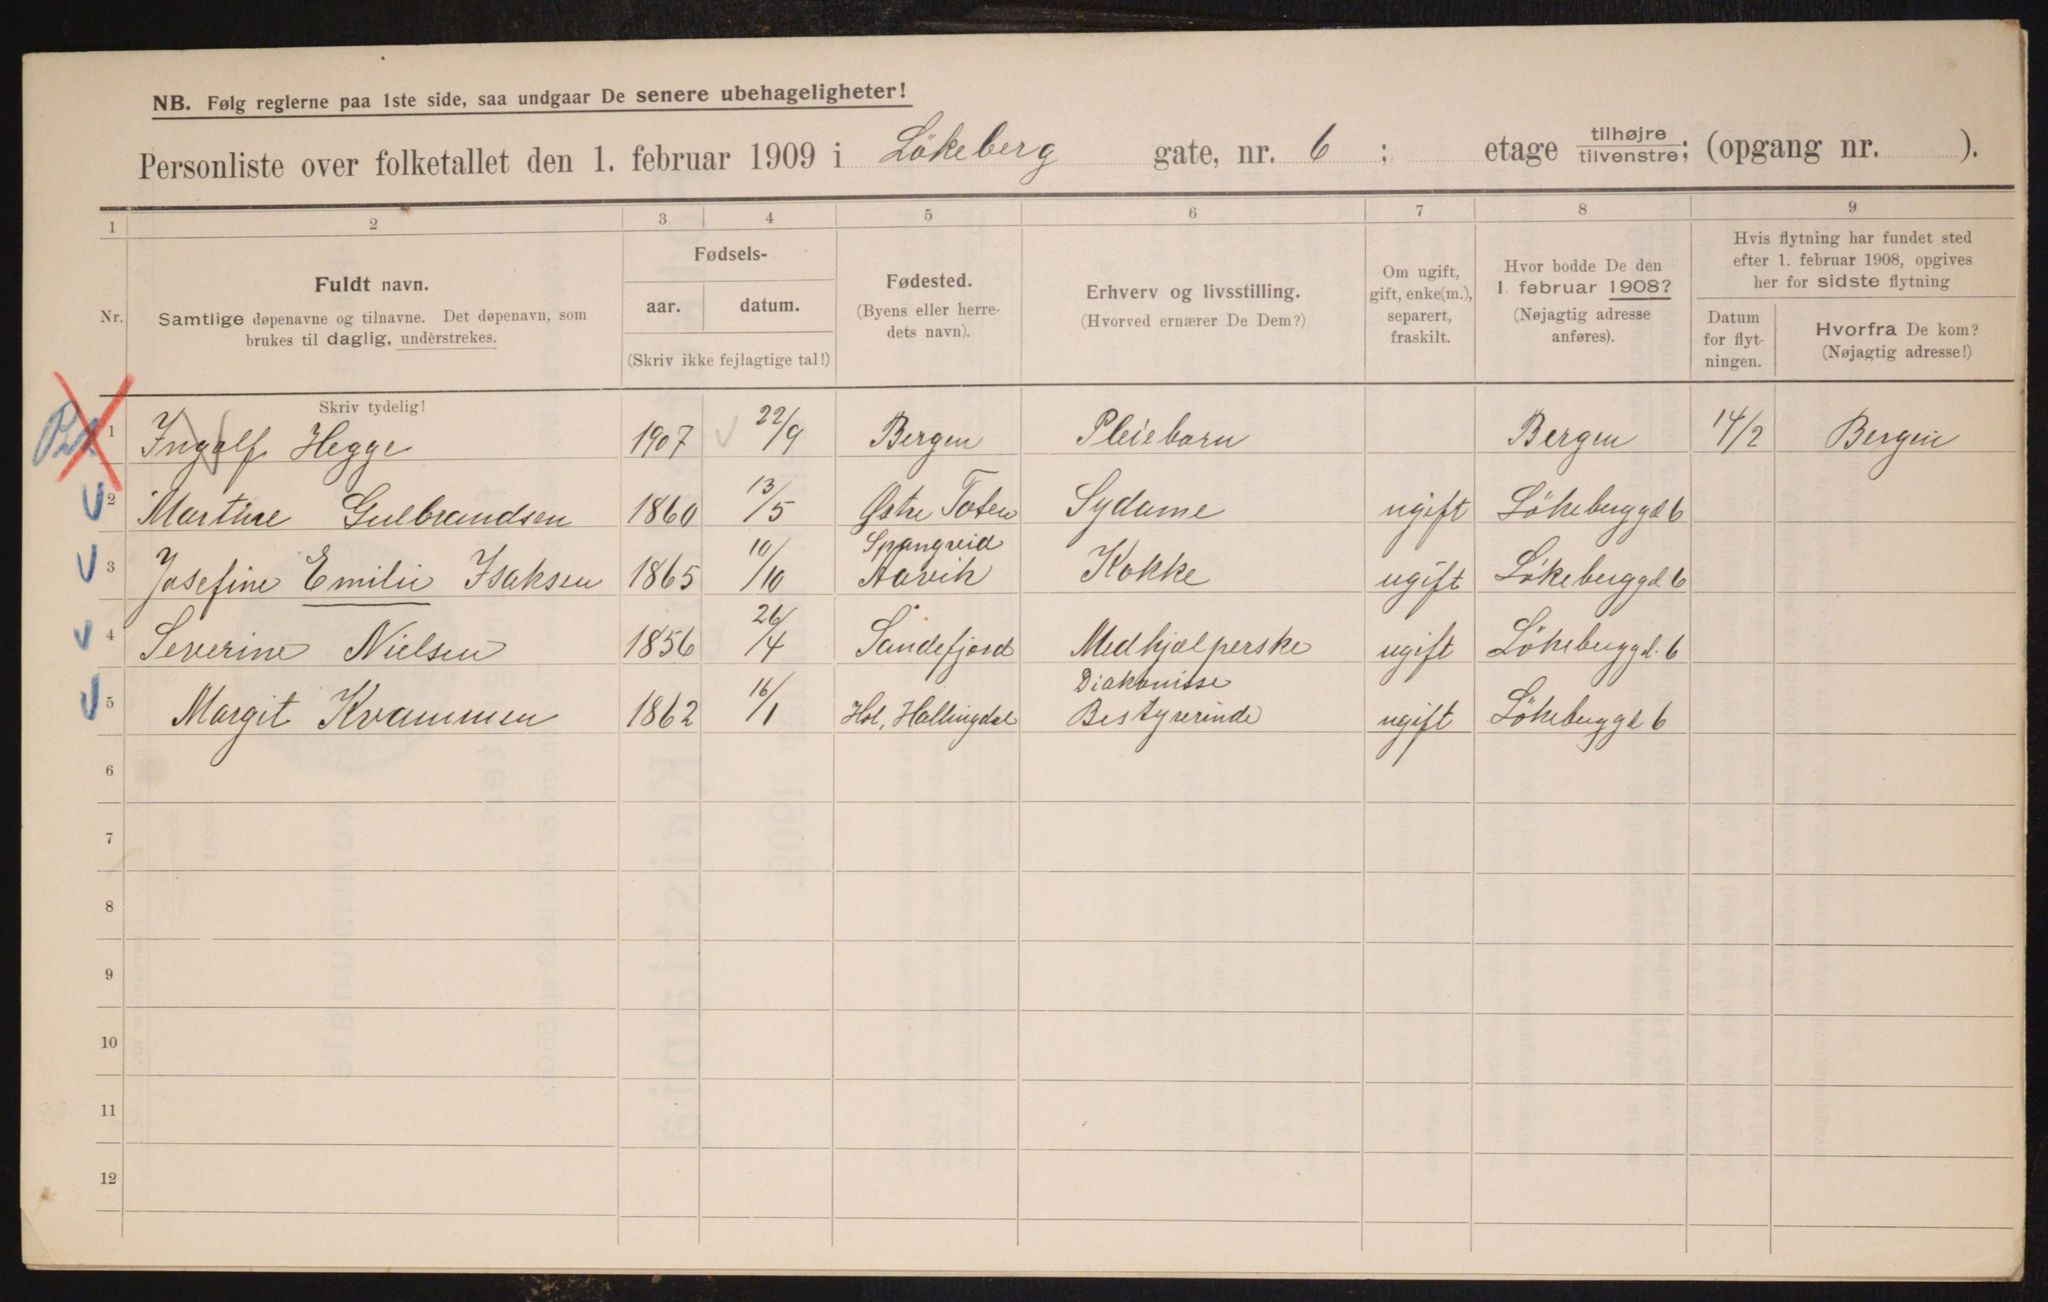 NB. Følg reglerne paa 1ste side, saa undgaar De senere ubehageligheter!
Personliste over folketallet den 1. februar 1909 i Lökeberg gate, nr. 6 ; etage tilhøjre/tilvenstre; (opgang nr. ).
1 2 3 4 5 6 7 8 9
Nr. Fuldt navn. Samtlige døpenavne og tilnavne. Det døpenavn, som brukes til daglig, understrekes. Skriv tydelig!
Fødsels- aar. datum. (Skriv ikke fejlagtige tal!)
Fødested. (Byens eller herredets navn).
Erhverv og livsstilling. (Hvorved ernærer De Dem?)
Om ugift, gift, enke(m.), separert, fraskilt.
Hvor bodde De den 1. februar 1908? (Nøjagtig adresse anføres).
Hvis flytning har fundet sted efter 1. februar 1908, opgives her for sidste flytning
Datum for flytningen. Hvorfra De kom? (Nøjagtig adresse!)
1 Ingolf Hegge 1907 22/9 Bergen Pleiebarn Bergen 14/2 Bergen
2 Marthe Gulbrandsen 1860 13/5 Østre Toten Sydame ugift Lökeberggd 6
3 Josefine Emilie Isaksen 1865 10/10 Aavik Kokke ugift Lökeberggd 6
4 Severine Nielsen 1856 26/4 Sandefjord Medhjælperske ugift Lökeberggd. 6
5 Margit Kvammen 1862 16/1 Hol, Hallingdal Diakonisse Bestyrerinde ugift Lökeberggd 6
6
7
8
9
10
11
12